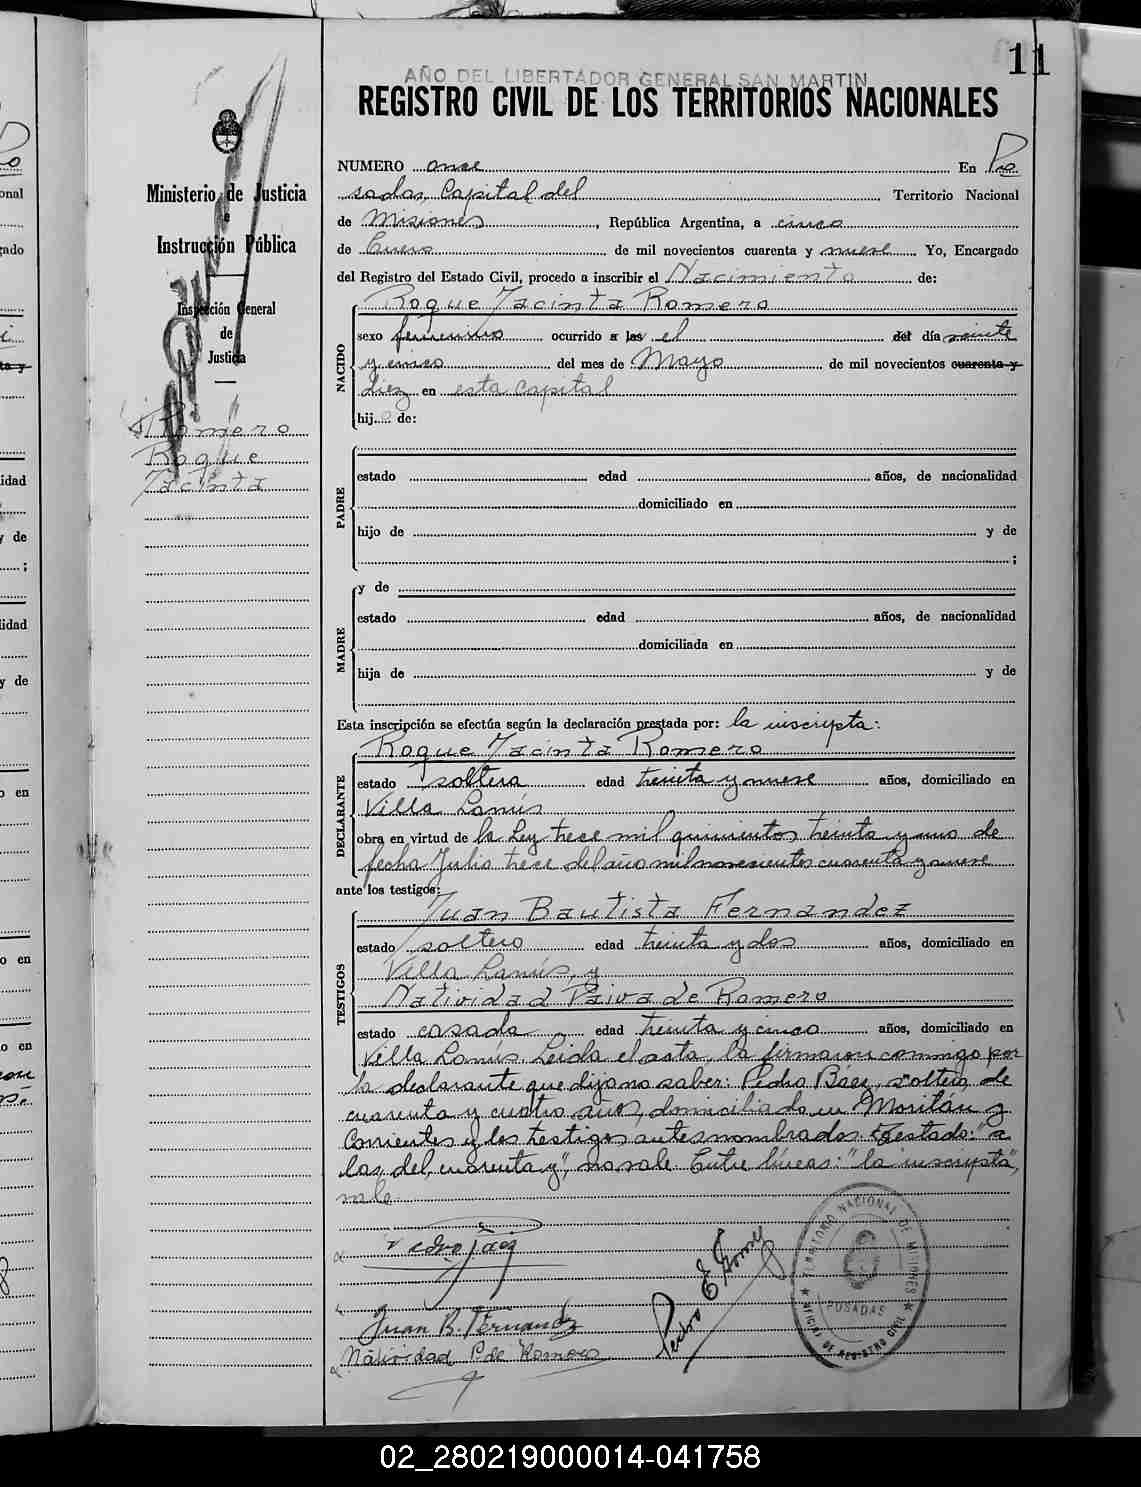 11
AÑO DEL LIBERTADOR GENERAL SAN MARTIN
REGISTRO CIVIL DE LOS TERRITORIOS NACIONALES
Ministerio de Justicia
e
Instrucción Pública
Inspección General
de
Justicia
Romero
Roque
Jacinta
NUMERO once En Po
sadas, Capital del Territorio Nacional
de Misiones, República Argentina, a cinco
de Enero de mil novecientos cuarenta y nueve Yo, Encargado
del Registro del Estado Civil, procedo a inscribir el Nacimiento de:
NACIDO
Roque Jacinta Romero
sexo femenino ocurrido a las el del día veinte
y cinco del mes de Mayo de mil novecientos cuarenta y
diez en esta capital
hij de:
PADRE
estado edad años, de nacionalidad
domiciliado en
hijo de y de
;
MADRE
y de
estado edad años, de nacionalidad
domiciliada en
hija de y de
Esta inscripción se efectúa según la declaración prestada por: la inscripta:
DECLARANTE
Roque Jacinta Romero
estado soltera edad treinta y nueve años, domiciliado en
Villa Lanús
obra en virtud de la Ley trece mil quinientos treinta y uno de
fecha Julio trece del año mil novecientos cuarenta y nueve
ante los testigos:
TESTIGOS
Juan Bautista Fernandez
estado soltero edad treinta y dos años, domiciliado en
Villa Lanús, y
Natividad Paiva de Romero
estado casada edad treinta y cinco años, domiciliado en
Villa Lanús. Leida el acta, la firmaron conmigo por
la declarante que dijo no saber: Pedro Báez, soltero de
cuarenta y cuatro años, domiciliado en Moritán y
Corrientes y los testigos antes nombrados. Testado: "a
las, del, cuarenta y", no vale. Entre líneas: "la inscripta",
vale
Pedro Báez
Juan B. Fernandez
Natividad P. de Romero
Pedro E Gomez
TERRITORIO NACIONAL DE MISIONES
POSADAS
OFICINA DE REGISTRO CIVIL
02_280219000014-041758